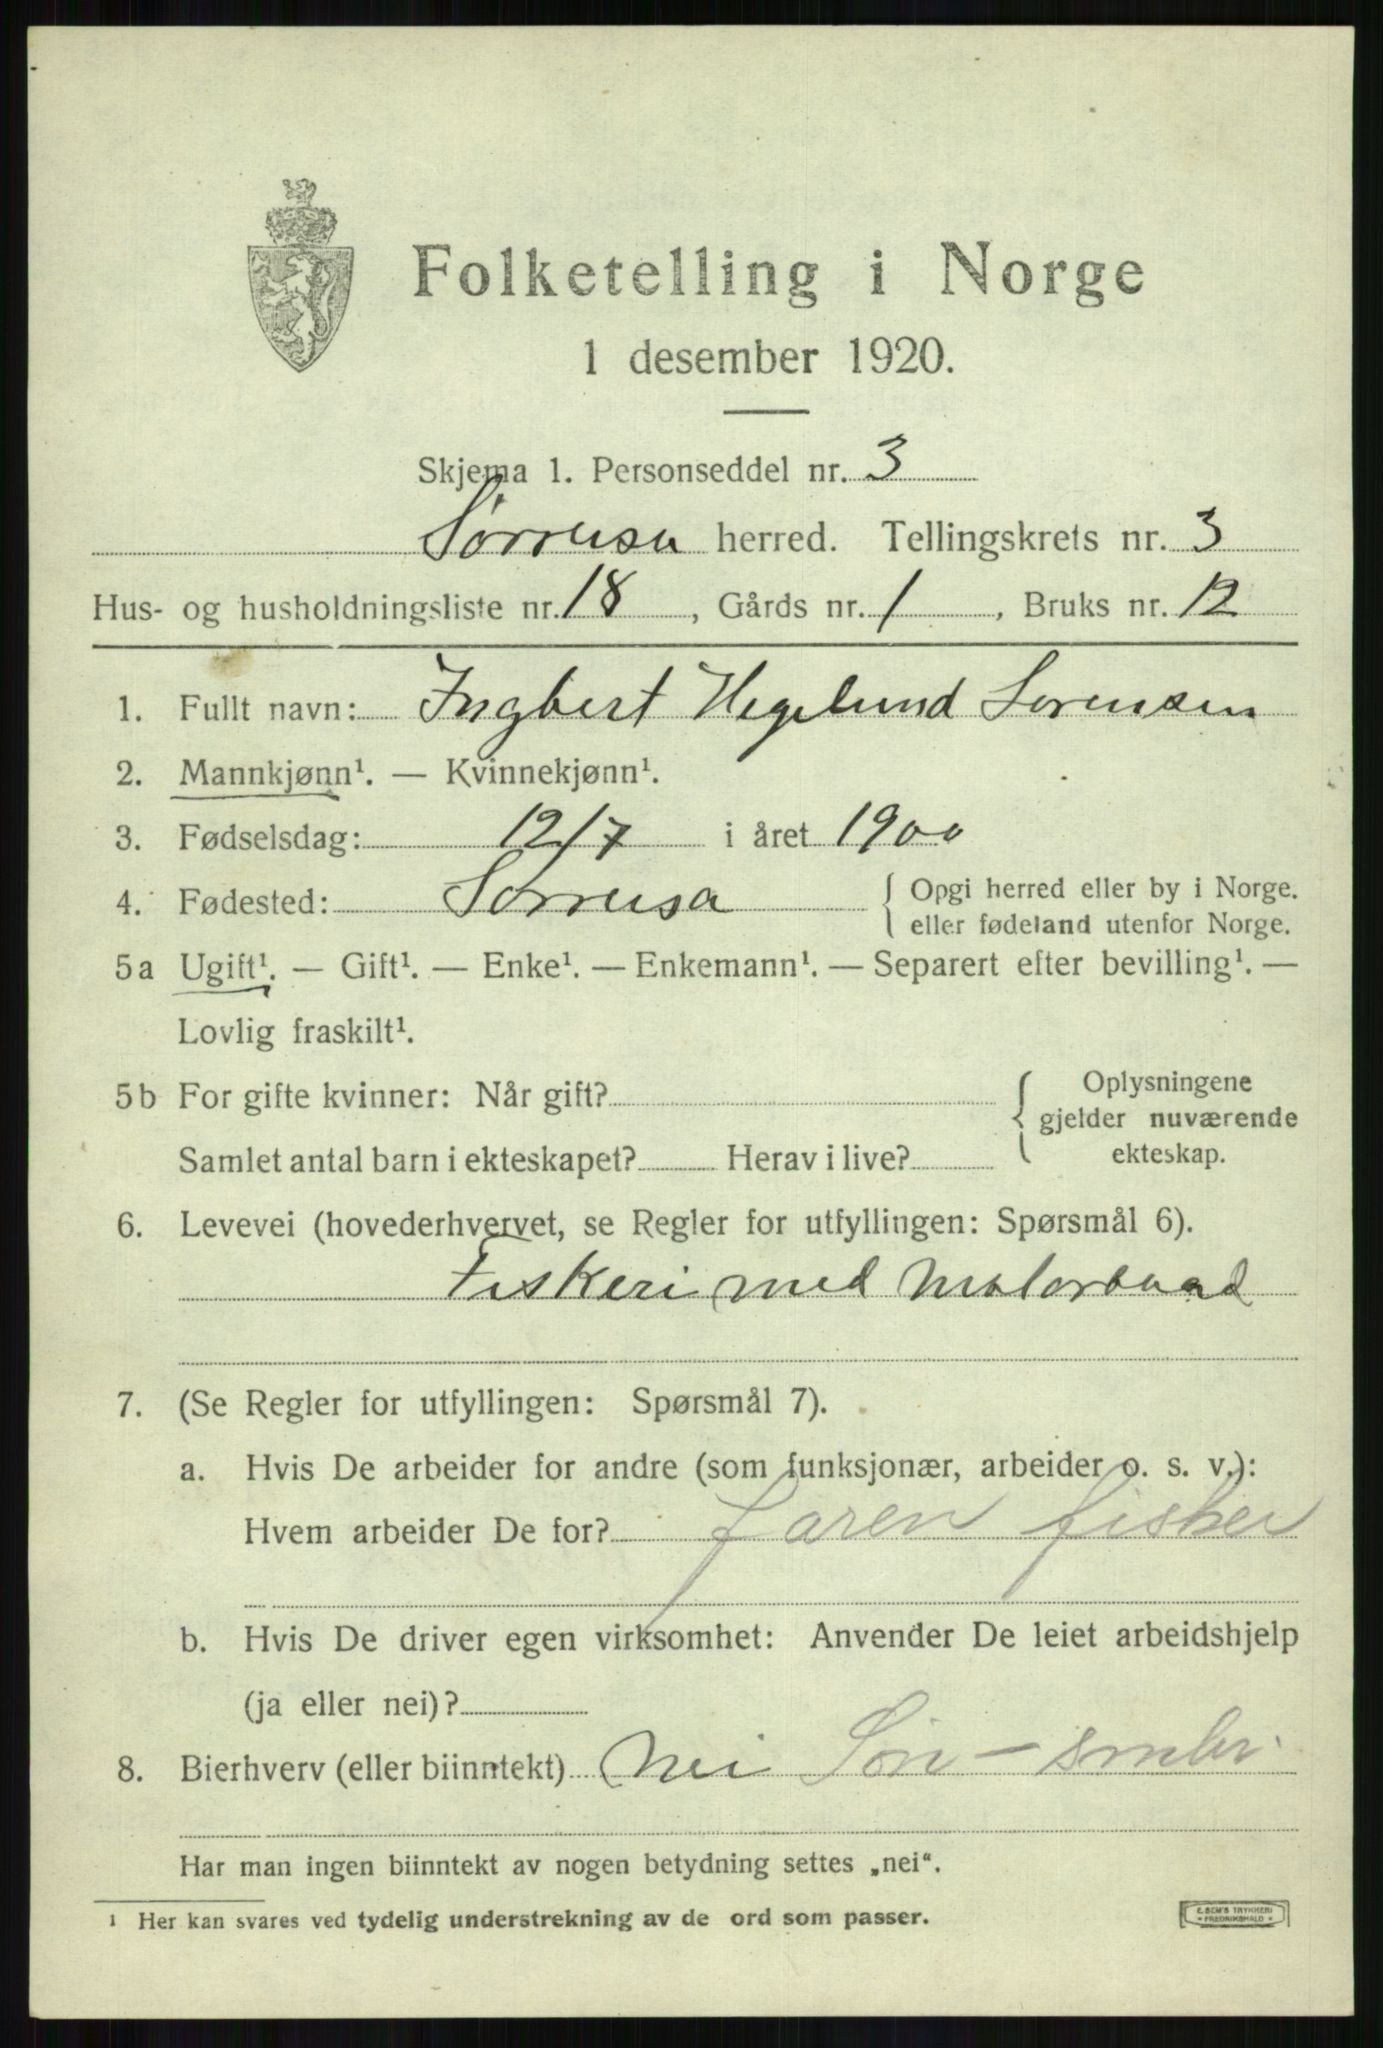 Folketelling i Norge
1 desember 1920.
Skjema 1. Personseddel nr. 3
Sørreisa herred. Tellingskrets nr. 3
Hus- og husholdningsliste nr. 18, Gårds nr. 1, Bruks nr. 12
1. Fullt navn: Ingbert Hegelund Sørensen
2. Mannkjønn¹. — Kvinnekjønn¹.
3. Fødselsdag: 12/7 i året 1900
4. Fødested: Sørreisa { Opgi herred eller by i Norge.
eller fødeland utenfor Norge.
5a Ugift¹. — Gift¹. — Enke¹. — Enkemann¹. — Separert efter bevilling¹. —
Lovlig fraskilt¹.
5b For gifte kvinner: Når gift? { Oplysningene
gjelder nuværende
Samlet antal barn i ekteskapet? Herav i live? ekteskap.
6. Levevei (hovederhvervet, se Regler for utfyllingen: Spørsmål 6).
Fiskeri med Motorbaad
7. (Se Regler for utfyllingen: Spørsmål 7).
a. Hvis De arbeider for andre (som funksjonær, arbeider o. s. v.):
Hvem arbeider De for? faren fisker
b. Hvis De driver egen virksomhet: Anvender De leiet arbeidshjelp
(ja eller nei)?
8. Bierhverv (eller biinntekt) Nei Søn —
Har man ingen biinntekt av nogen betydning settes „nei“.
¹ Her kan svares ved tydelig understrekning av de ord som passer.
E. SEM'S TRYKKERI
* FREDRIKSHALD *